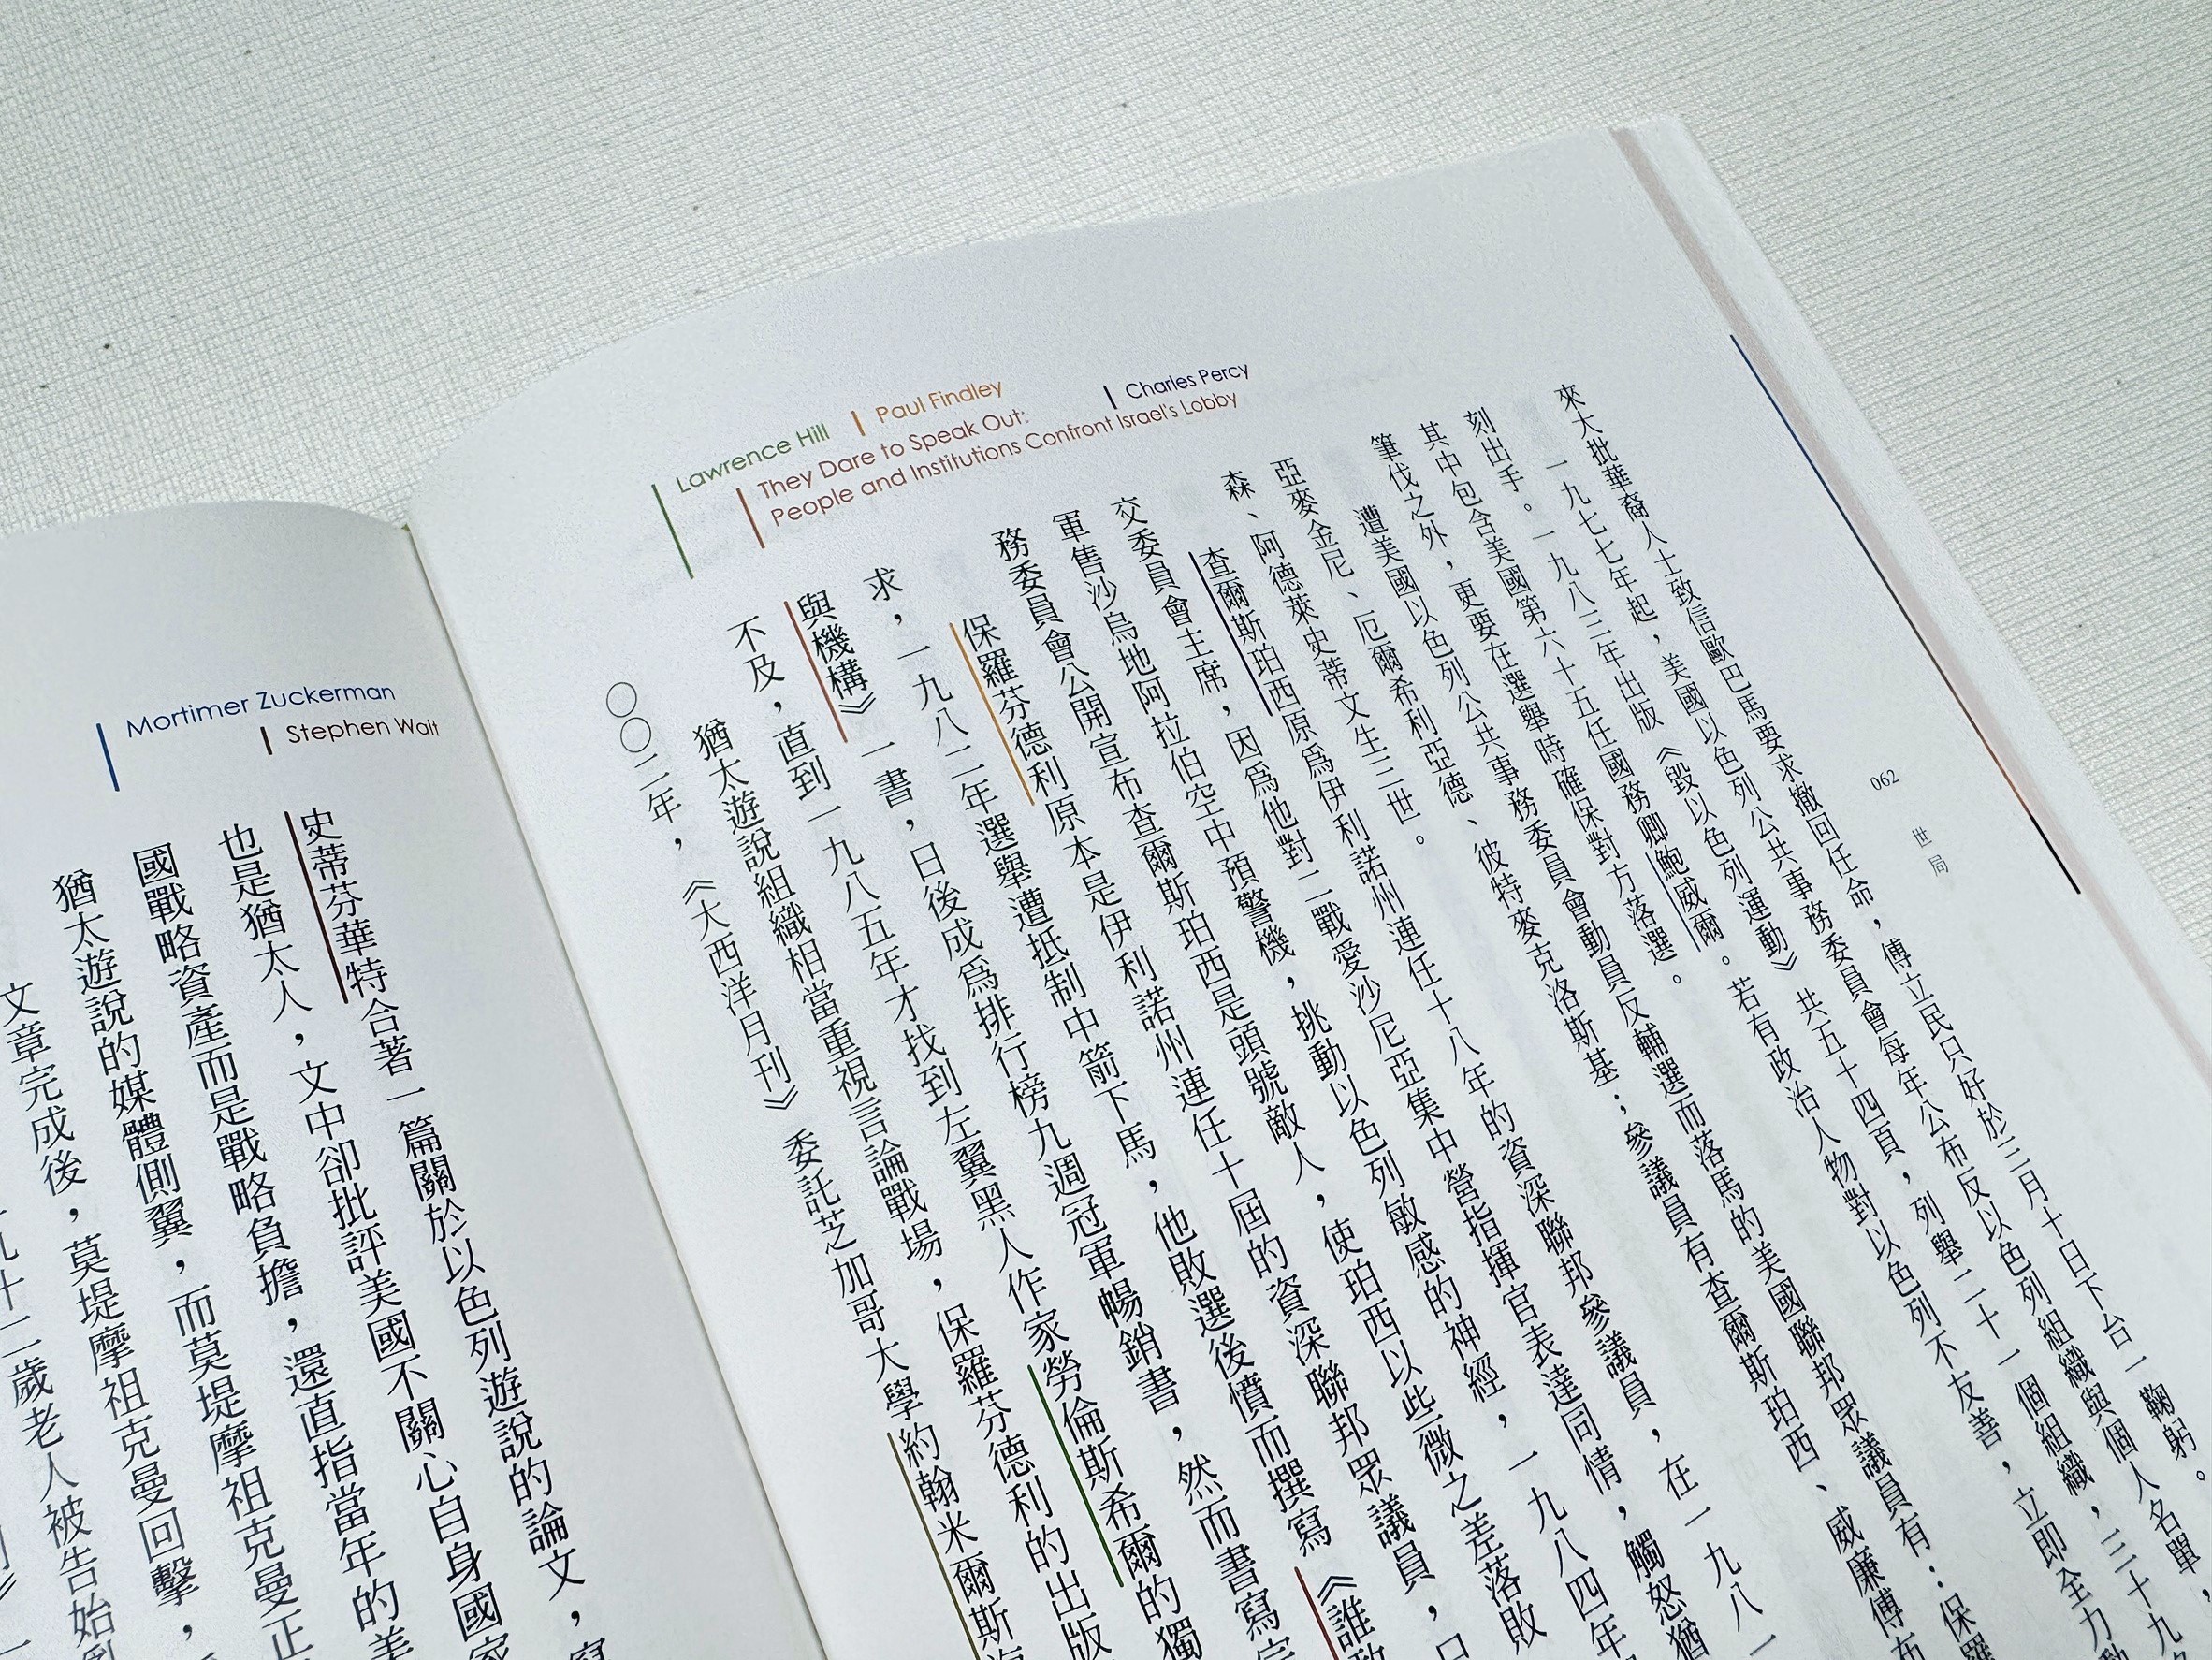 062
世局
Charles Percy
Paul Findley
They Dare to Speak Out:
People and Institutions Confront Israel's Lobby
Lawrence Hill
來大批華裔人士致信歐巴馬要求撤回任命，傅立民只好於三月十日下台一鞠躬。
一九七七年起，美國以色列公共事務委員會每年公布反以色列組織與個人名單，
刻出手。一九八三年出版《毀以色列運動》共五十四頁，列舉二十一個組織，三十九
其中包含美國第六十五任國務卿鮑威爾。若有政治人物對以色列不友善，立即全力動
筆伐之外，更要在選舉時確保對方落選。
遭美國以色列公共事務委員會動員反輔選而落馬的美國聯邦眾議員有：保羅
亞麥金尼、厄爾希利亞德、彼特麥克洛斯基；參議員有查爾斯珀西、威廉傅布
森、阿德萊史蒂文生三世。
查爾斯珀西原為伊利諾州連任十八年的資深聯邦參議員，在一九八一
交委員會主席，因為他對二戰愛沙尼亞集中營指揮官表達同情，觸怒猶
軍售沙烏地阿拉伯空中預警機，挑動以色列敏感的神經，一九八四年
務委員會公開宣布查爾斯珀西是頭號敵人，使珀西以些微之差落敗
保羅芬德利原本是伊利諾州連任十屆的資深聯邦眾議員，
求，一九八二年選舉遭抵制中箭下馬，他敗選後憤而撰寫《誰敢
與機構》一書，日後成為排行榜九週冠軍暢銷書，然而書寫完
不及，直到一九八五年才找到左翼黑人作家勞倫斯希爾的獨
猶太遊說組織相當重視言論戰場，保羅芬德利的出版
〇〇二年，《大西洋月刊》委託芝加哥大學約翰米爾斯
Stephen Walt
Mortimer Zuckerman
史蒂芬華特合著一篇關於以色列遊說的論文，
也是猶太人，文中卻批評美國不關心自身國家
國戰略資產而是戰略負擔，還直指當年的美
猶太遊說的媒體側翼，而莫堤摩祖克曼正
文章完成後，莫堤摩祖克曼回擊，
十二歲老人被告始